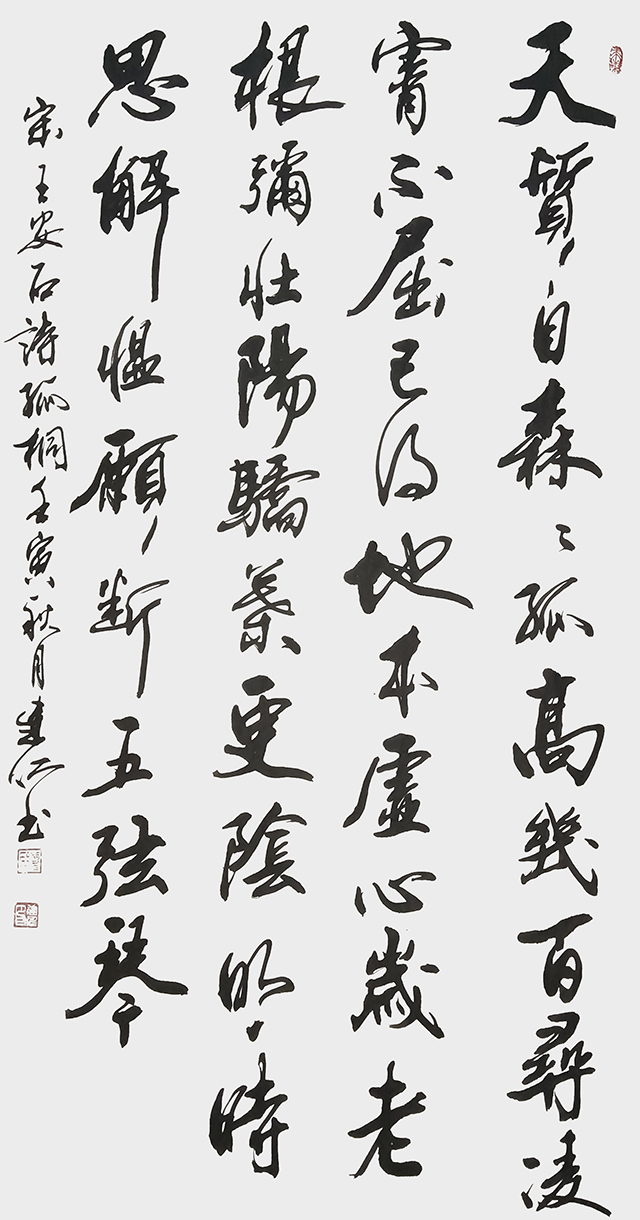 天質自森〻孤高幾百尋凌
霄不屈己得地本虛心歲老
根彌壯陽驕葉更陰明時
思解愠願斷五弦琴
宋王安石詩孤桐壬寅秋月建仁书